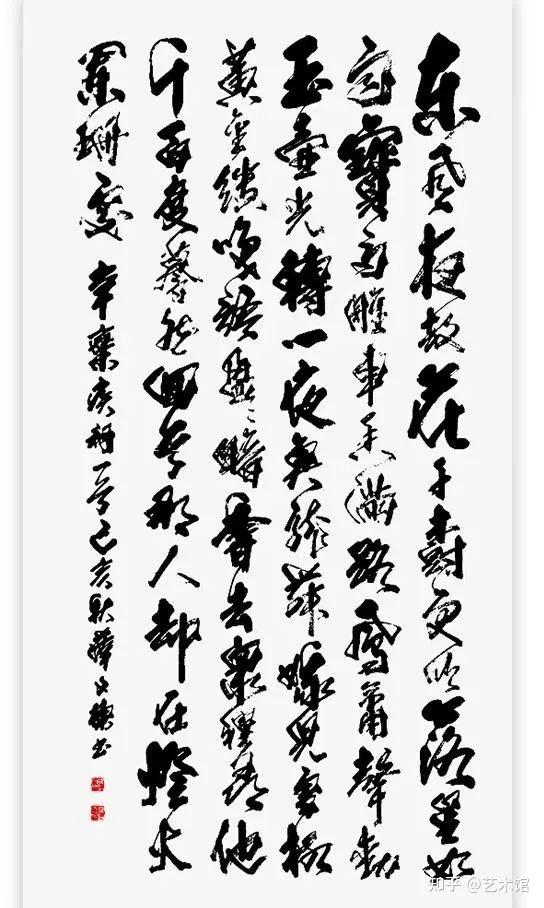 东风夜放花千樹更吹落星如
雨寶馬雕車香滿路鳳簫聲動
玉壺光轉一夜魚龍舞蛾兒雪柳
黄金縷笑語盈盈暗香去衆裡尋他
千百度驀然回首那人却在燈火
闌珊處 辛棄疾詞一首己亥秋薛文书
知乎 @艺术馆